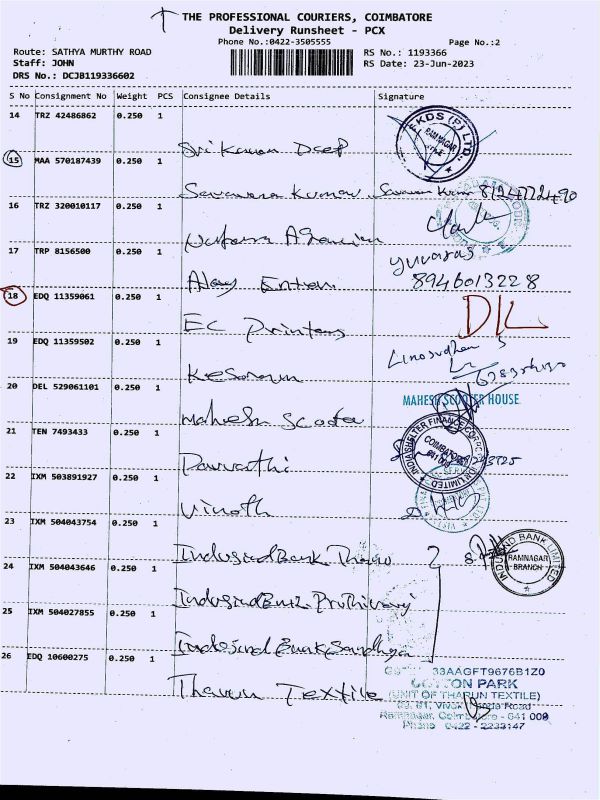 THE PROFESSIONAL COURIERS, COIMBATORE
Delivery Runsheet - PCX
Phone No.:0422-3505555
Page No.:2
Route: SATHYA MURTHY ROAD
RS No.: 1193366
Staff: JOHN
RS Date: 23-Jun-2023
DRS No.: DCJB119336602
S No Consignment No Weight PCS Consignee Details Signature
14 TRZ 42486862 0.250 1
RAMNAGAR
15 MAA 570187439 0.250 1
Saravana Kumar
16 TRZ 320010117 0.250 1
17 TRP 8156500 0.250 1
Yuvaraj
8946013228
18 EDQ 11359061 0.250 1
EC Printers
19 EDQ 11359502 0.250 1
Kesavan
20 DEL 529061101 0.250 1
MAHESH SCOOTER HOUSE
Mahesh Scooter
21 TEN 7493433 0.250 1
INDIA SHELTER FINANCE CORPORATION LIMITED
COIMBATORE
641 009
Parvathi
22 IXM 503891927 0.250 1
Vinoth
23 IXM 504043754 0.250 1
INDUSIND BANK LIMITED
RAMNAGAR
BRANCH
IndusindBank
24 IXM 504043646 0.250 1
IndusindBank Prithiviraj
25 IXM 504027855 0.250 1
Indusind Bank Sandhya
26 EDQ 10600275 0.250 1
33AAGFT9676B1Z0
COTTON PARK
(UNIT OF THARUN TEXTILE)
Tharun Textile
Ramnagar, Coimbatore - 641 009
Phone 0422 - 2233147